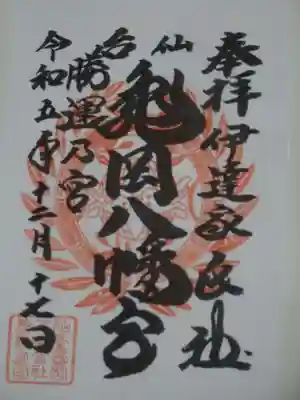 奉拝 伊達家氏社
仙台
亀岡八幡宮
勝運乃宮
令和五年十二月十七日